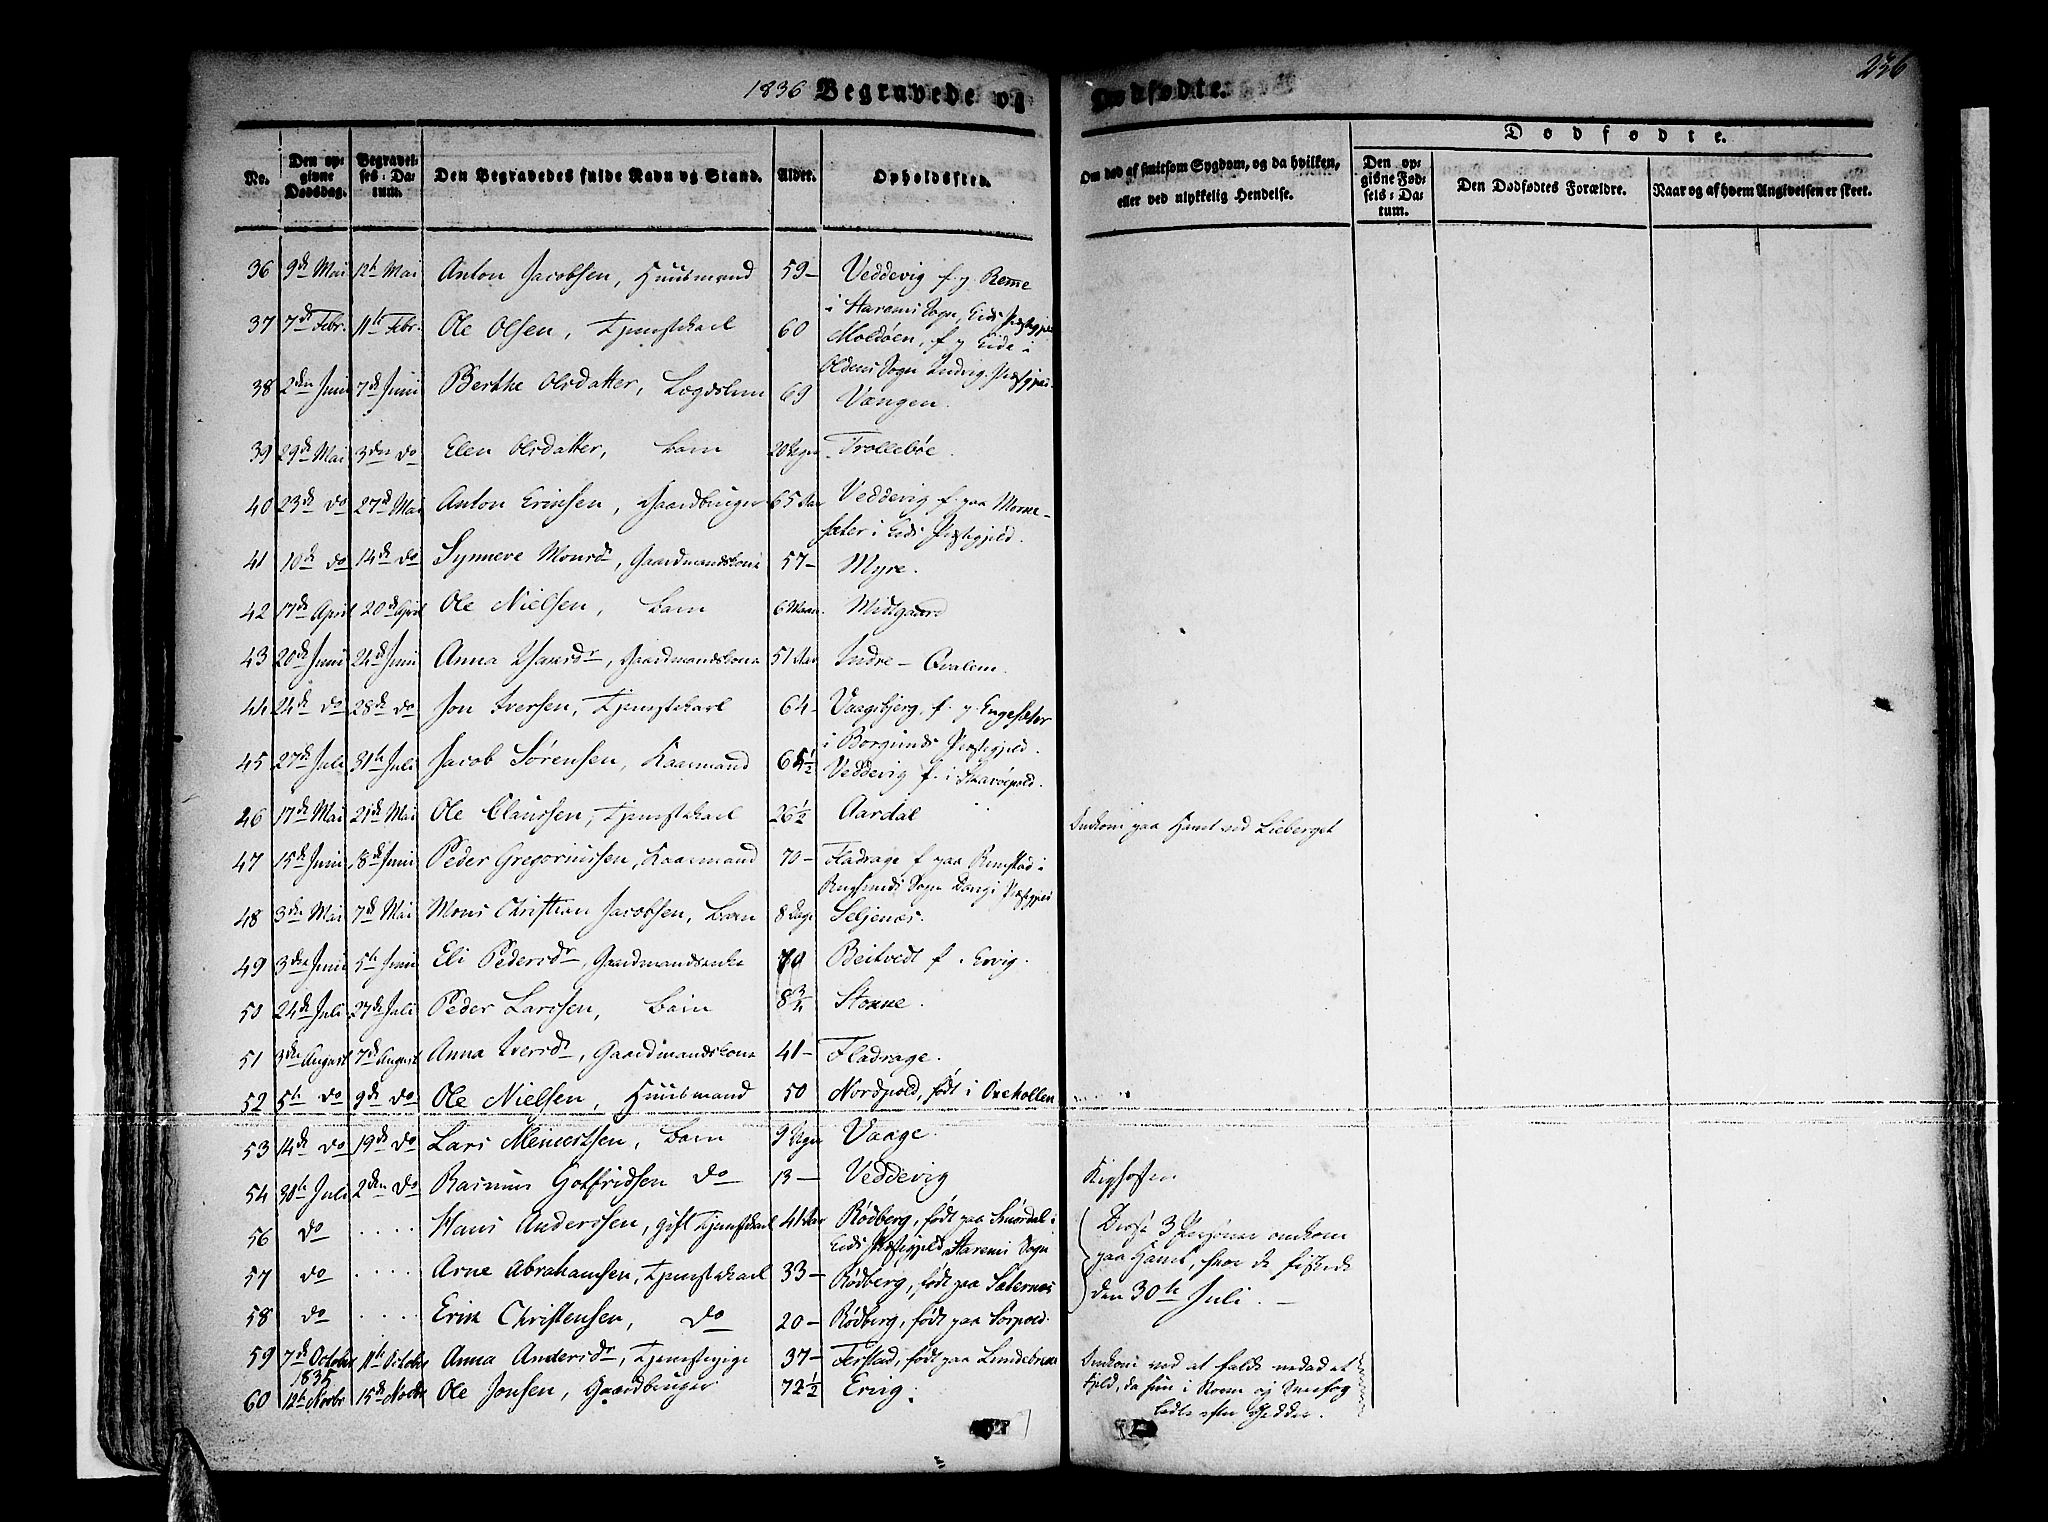 1836 Begravede og Dødfødte.
236
No.
Den op-
givne
Dødsdag.
Begravel-
ses-Da-
tum.
Den Begravedes fulde Navn og Stand.
Alder.
Opholdssted.
Om død af smitsom Sygdom, og da hvilken,
eller ved ulykkelig Hendelse.
Dødfødte.
Den op-
givne Fød-
sels-Da-
tum.
Den Dødfødtes Forældre.
Naar og af hvem Angivelsen er skeet.
36 9de Mai 12te Mai Anton Jacobsen, Huusmand 59- Veddevig f. p.
i Starems Sogn, Eids Præstegjeld
37 7de Febr. 11te Febr. Ole Olsen, Tjenestekarl 60 Moldøen, f. p. Eide i
Oldens Sogn Indvig Præstegjeld
38 2den Juni 7de Juni Berthe Olsdatter, Lægdslem 69 Vangen.
39 29de Mai 3den do Elen Olsdatter, Barn 20 Uger Trollebøe.
40 23de do 27de Mai Anton Ericsen, Gaardbruger 65 Aar Veddevig f. paa Morne-
sæter i Eids Præstegjeld.
41 10de do 14de do Synneve Monsdr, Gaardmandskone 57- Myre.
42 17de April 20de April Ole Nielsen, Barn 6 Maan. Midtgaard
43 20de Juni 24de Juni Anna dr, Gaardmandskone 51 Aar Indre-Qvalem.
44 24de do 28de do Jon Iversen, Tjenestekarl 64- Vaagsbjerg, f. p. Engesæter
i Borgunds Præstegjeld.
45 27de Juli 31te Juli Jacob Sørensen, Kaarmand 65½ Veddevig f. i
26 17de Mai 21de Mai Ole Claussen, Tjenestekarl 26½ Aardal Omkom paa Havet ved
47 15de Juni 18de Juni Peder Gregoriussen, Kaarmand 70- Fladrage f. paa Rimstad i
Rugsunds Sogn Davigs Præstegjeld
48 3den Mai 7de Mai Mons Christian Jacobsen, Barn 8 Dage Seljenæs.
49 3den Juni 5te Juni Eli Pedersdr, Gaardmandsenke 70 Beitvedt f. Ervig.
50 24de Juli 27de Juli Peder Larssen, Barn 8¾ Stokke.
51 3die August 7de August Anna Iversdr, Gaardmandskone 41- Fladrage.
52 5te do 9de do Ole Nielsen, Huusmand 50 Nordpold, født i Oxehollen
53 14de do 19de do Lars Meinertsen, Barn 9 Uger Vaage.
54 30te Juli 2den do Rasmus Gotfridsen do 13- Veddevig Kighosten
56 do .... Hans Anderssen, gift Tjenestekarl 41 Aar Rødberg, født paa Smørdal i
Eids Præstegjeld Starems Sogn
Disse 3 Personer omkom
paa Havet, hvor de fiskede
den 30te Juli. -
57 do .... Arne Abrahamsen, Tjenestekarl 33- Rødberg, født paa Saternæs
58 do .... Erik Christensen, do 20- Rødberg, født paa Sørpold.
59 7de October 11te October Anna Andersdr, Tjenestepige 37- Ferstad, født paa Lundebrek
Omkom ved at falde nedad et
Fjeld, da hun i Storm og Sneefog
ledte efter Gjeder.
1835
60 12te Novbr 15de Novbr Ole Jonsen, Gaardbruger 72½ Ervig.